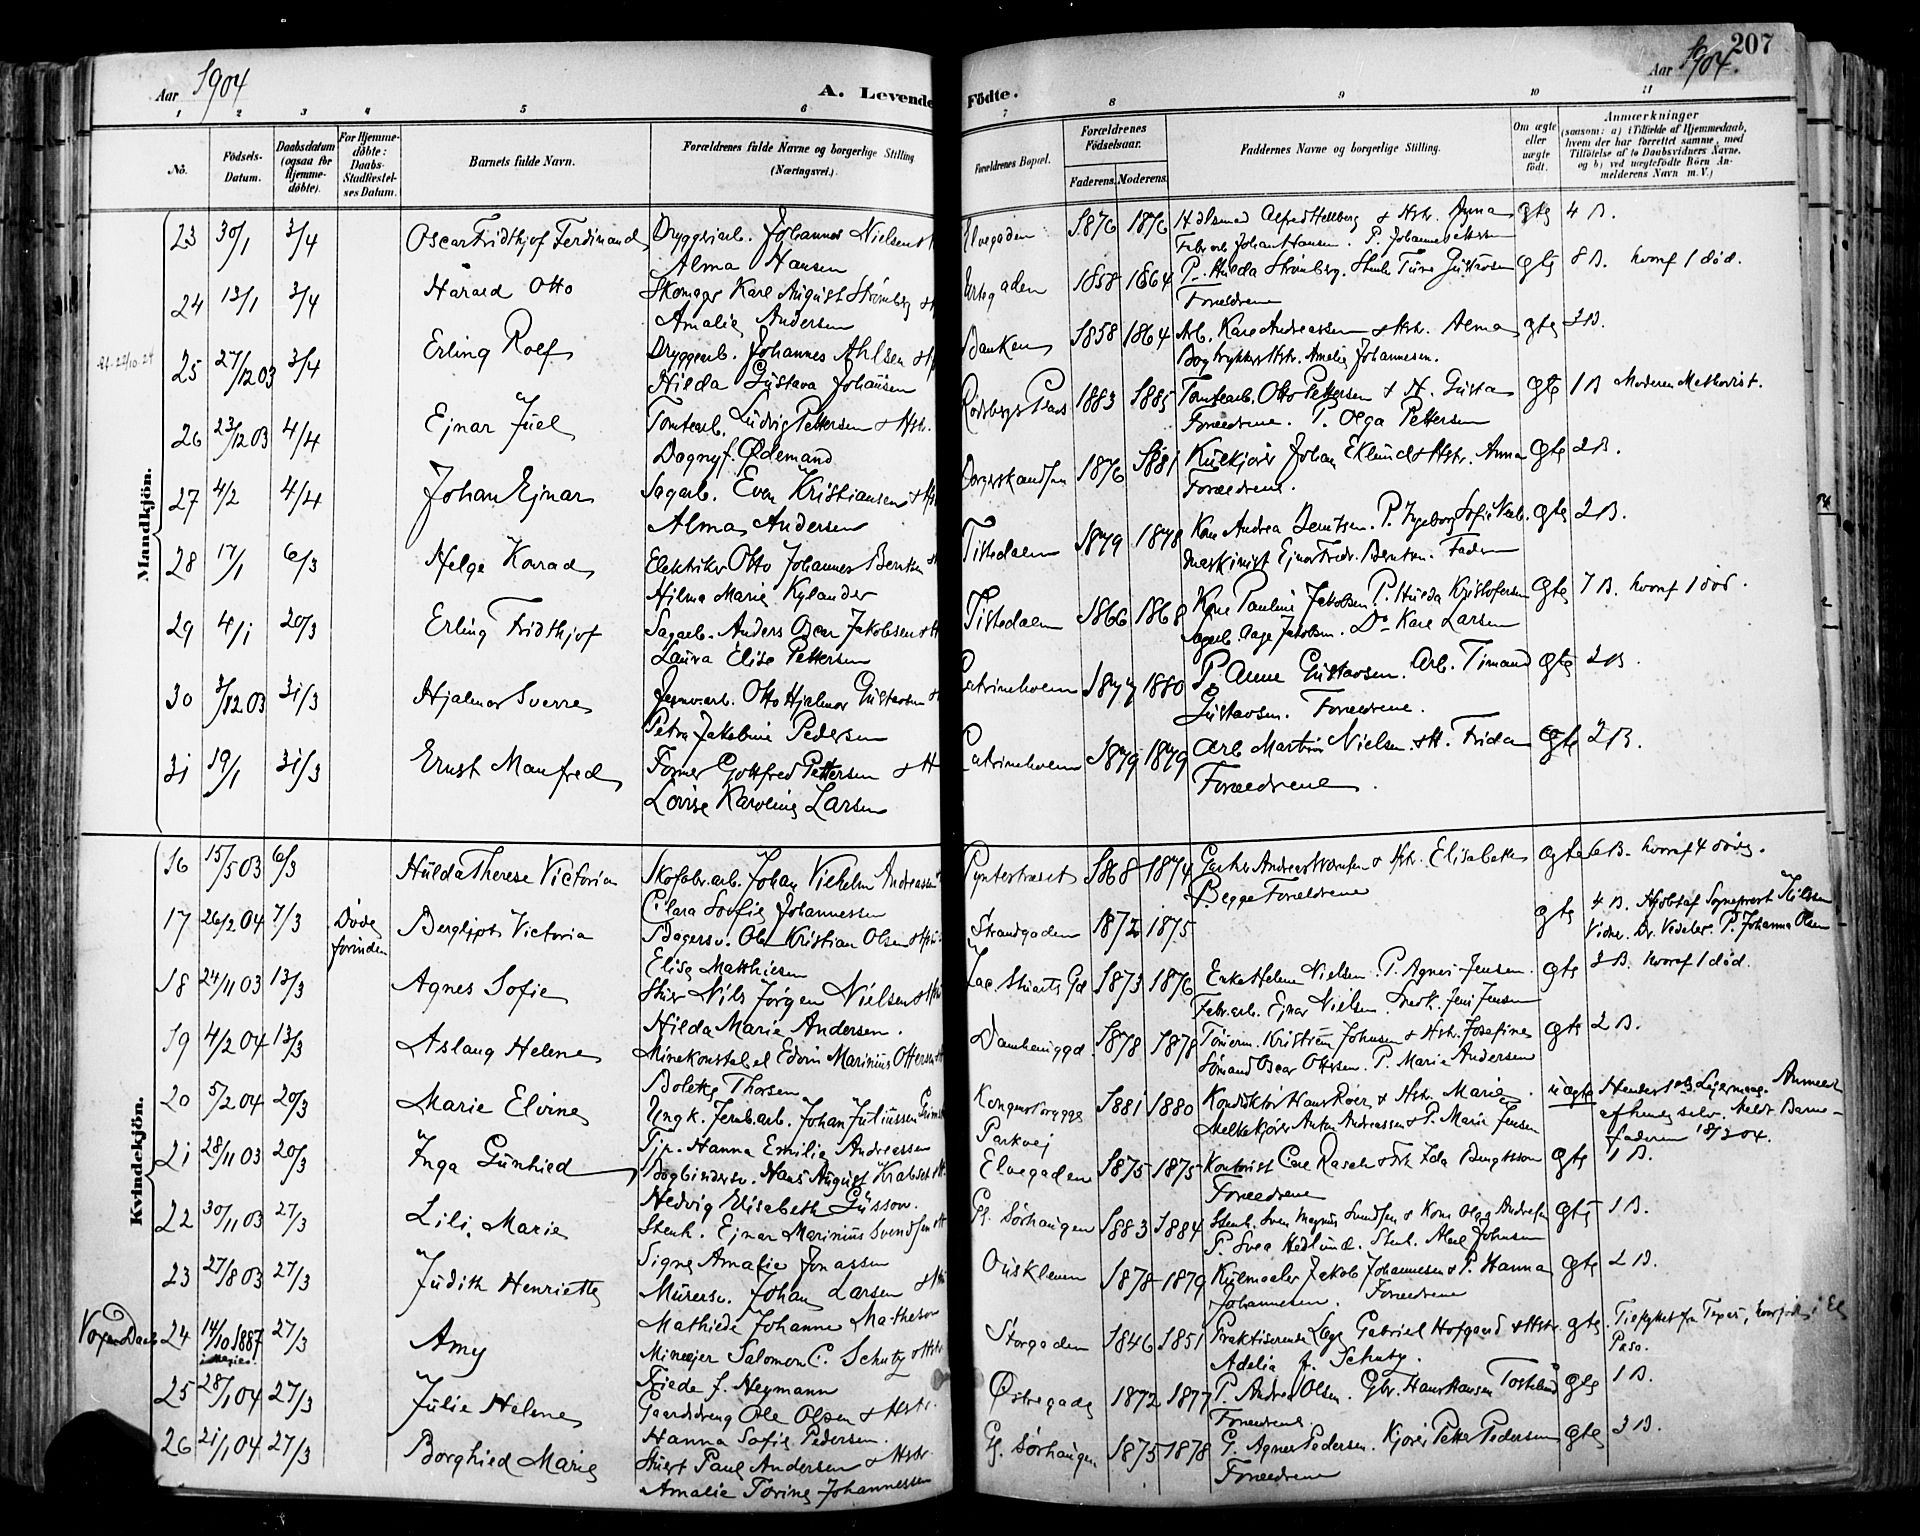 Aar 1904
A. Levende Födte.
Aar 1904.
207
1 2 3 4 5 6 7 8 9 10 11
No.
Födsels-Datum.
Daabsdatum (ogsaa for hjemme-döbte).
For Hjemme-döbte: Daabs-Stadfæstel-ses Datum.
Barnets fulde Navn.
Forældrenes fulde Navne og borgerlige Stilling (Næringsvei.)
Forældrenes Bopæl.
Forældrenes Födselsaar.
Faderens. Moderens.
Faddernes Navne og borgerlige Stilling.
Om ægte eller uægte födt.
Anmærkninger
(saasom: a) i Tilfælde af Hjemmedaab, hvem der har forrettet samme, med Tilföielse af to Daabsvidners Navne, og b) ved uægtefödte Börn An-melderens Navn m. V.)
Mandkjön.
23 30/1 3/4 Oscar Fridthjof Ferdinand Bryggeriarb. Johannes Nielsen
Alma Hansen
Elvegaden 1876 1876 Alfred Hellberg & Hstr. Anna
Johan Hansen. P. Johanne Pettersen
gte 4 B.
24 13/1 3/4 Harald Otto Skomager Karl August Strömberg
Amalie Andersen
1858 1864 P. Hilda Strömberg. Stenh. Ture Gustavsen
Forældrene
gte 8 B. hvoraf 1 död.
25 27/12 03 3/4 Erling Rolf Bryggearb. Johannes Ahlsen
Hilda Gustava Johansen
Banken 1858 1864 Arb. Karl Andreassen & Hstr. Alma
Bogtrykker Hstr. Amelia Johannesen.
gte 3 B.
26 23/12 03 4/4 Ejnar Juel Tomtearb. Ludvig Pettersen & Hstr.
Dagny f. Ødemand
Rödsbergs Plads 1883 1885 Tomtearb. Otto Pettersen & H. Gusta
Forældrene. P. Olga Pettersen
gte 1 B Moderen Methodist.
27 4/2 4/4 Johan Ejnar Sagarb. Even Kristiansen
Alma Andersen
1876 1881 Kulkjører Johan Eklund & Hstr. Anna
Forældrene.
gte 2 B.
28 17/1 6/3 Helge Konrad Elektriker Otto Johannes Berntsen
Hilma Marie Kylander
Tistedalen 1879 1878 Kone Andrea Berntsen. P. Ingeborg Sofie
Maskinist Ejnar Fredr. Berntsen. Faderen
gte 2 B.
29 4/1 20/3 Erling Fridthjof Sagarb. Anders Oscar Jakobsen
Laura Elise Pettersen
Tistedalen 1866 1868 Kone Pauline Jakobsen. P. Hulda Kristofersen
Sagarb. Aage Jakobsen. Do Karl Larsen
gte 7 B. hvoraf 1 död.
30 3/12 03 31/3 Hjalmar Sverre Jernv.arb. Otto Hjalmar Gustavsen
Petra Jakobine Pedersen
Catrineholm 1877 1880 P. Anne Gustavsen. Arb. Timand
Gustavsen. Forældrene.
gte 2 B.
31 19/1 31/3 Ernst Manfred Former Gottfred Pettersen & H
Lovise Karoline Larsen
Catrineholm 1879 1879 Arb Martin Nielsen & H. Frida
Forældrene.
gte 2 B.
Kvindekjön.
16 15/5 03 6/3 Hulda Therese Victoria Skofabr.arb. Johan Vilhelm Andreassen
Clara Sofie Johannessen
1868 1874 & Hstr. Elisabeth
Begge Forældrene
ægte 6 B. hvoraf 4 döde.
17 26/2 04 7/3 Döde forinden Bergljot Victoria Bagersv. Ole Kristian Olsen
Elise Matthiesen
Strandgaden 1872 1875
gte 4 B. Hjdøbt af Sogneprest Nilssen
Vidner. Dr. Vedeler. P. Johanna Olsen
18 24/11 03 13/3 Agnes Sofie Stuer Nils Jörgen Nielsen
Hilda Marie Andersen.
1873 1876 Enke Helene Nielsen. P. Agnes Jensen.
Fabr.arb. Ejnar Nielsen. Jens Jensen
gte 3 B. hvoraf 1 död.
19 4/2 04 13/3 Aslaug Helene Minekonstabel Edvin Marinius Ottersen
Bolette Thorsen
Damhaugga. 1878 1878 Kristian Johnsen & Hstr. Josefine
Sömand Oscar Ottersen. P. Marie Andersen
gte 2 B.
20 5/2 04 20/3 Marie Elvine Ungk. Jernb.arb. Johan Juliussen
Pip. Hanna Emilie Andreassen
Kongens brygge
Parkvej
1881 1880 Konduktör Hans Roer & Hstr. Marie.
Melkekjører Anton Andreassen & P. Marie Jensen
uægte Hendes 1ste Leiermaal. Anmeldt
af hende selv. Meldt Barne-
faderen 18/3 04.
21 28/11 03 20/3 Inga Gunhild Bogbindersv. Hans August Krabset
Hedvig Elisabeth Gussov.
Elvegaden 1875 1875 Kontorist Carl Rasch & Frk Ida Bengtsson
Forældrene
gte 1 B.
22 30/11 03 27/3 Lili. Marie Stenh. Ejnar Marinius Svendsen
Signe Amalie Jonassen
Gl. Sörhaugen 1883 1884 Stenh. Sven Magnus Svendsen & Kone Olga Andresen
P. Svea Hedlund. Stenh. Abel Johnsen
gte 1 B.
23 27/8 03 27/3 Judith Henriette Murersv. Johan Larsen
Mathilde Johanne Matheson
Ouskleven 1878 1879 Kulmaaler Jakob Johannesen & P. Hanna
Johannesen. Forældrene
gte 2 B.
Voxen Daab 24 14/10 1887 i Mexico. 27/3 Amy Mineejer Salomon C. Schutz & Hstr
Friede f. Neymann
Storgaden 1846 1851 Praktiserende Læge Gabriel Hofgaard & Hstr
Adelia f. Schutz.
gte. Tilflyttet fra Texas, hvor födt i El
Paso.
25 28/1 04 27/3 Julie Helene Gaardsdreng Ole Olsen & Hstr.
Hanna Sofie Pedersen.
Østregade 1872 1877 P. Andrea Olsen. Gbr. Hans Hansen Torslund
Forældrene.
gte 1 B.
26 21/1 04 27/3 Borghild Marie Stuert Paul Andersen & Hstr.
Amalie Torine Johannessen
Gl. Sörhaugen 1875 1878 P. Agnes Pedersen. Kjører Petter Pedersen
Forældrene
gte 3 B.